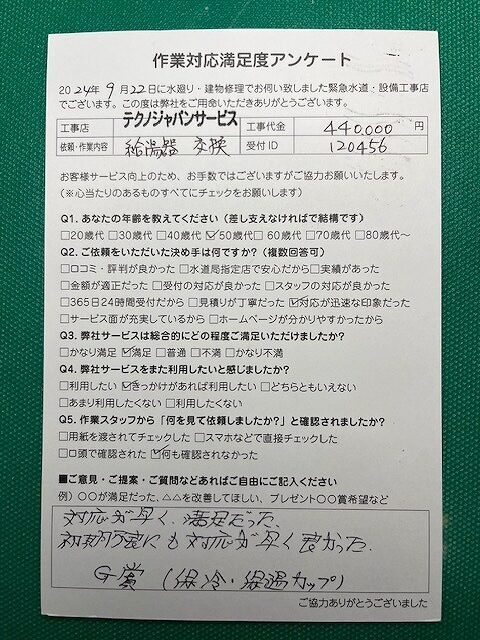 作業対応満足度アンケート
2024年9月22日に水廻り・建物修理でお伺い致しました緊急水道・設備工事店
でございます。この度は弊社をご用命いただきありがとうございます。
工事店 テクノジャパンサービス 工事代金 440,000 円
依頼・作業内容 給湯器 交換 受付ID 120456
お客様サービス向上のため、お手数ではございますがご協力お願いいたします。
（※心当たりのあるものすべてにチェックをお願いします）
Q1. あなたの年齢を教えてください（差し支えなければで結構です）
□20歳代□30歳代□40歳代☑50歳代□60歳代□70歳代□80歳代～
Q2. ご依頼をいただいた決め手は何ですか?（複数回答可）
□口コミ・評判が良かった□水道局指定店で安心だから□実績があった
□金額が適正だった□受付の対応が良かった□スタッフの対応が良かった
□365日24時間受付だから□見積りが丁寧だった☑対応が迅速な印象だった
□サービス面が充実しているから□ホームページが分かりやすかったから
Q3. 弊社サービスは総合的にどの程度ご満足いただけましたか?
□かなり満足☑満足□普通□不満□かなり不満
Q4. 弊社サービスをまた利用したいと感じましたか?
□利用したい☑きっかけがあれば利用したい□どちらともいえない
□あまり利用したくない□利用したくない
Q5. 作業スタッフから「何を見て依頼しましたか?」と確認されましたか?
□用紙を渡されてチェックした□スマホなどで直接チェックした
□口頭で確認された☑何も確認されなかった
■ご意見・ご提案・ご質問などあればご自由にご記入ください
例）〇〇が満足だった、△△を改善してほしい、プレゼント〇〇賞希望など
対応が早く、満足だった。
初期不良にも対応が早く良かった。
G賞（保冷・保温カップ）
ご協力ありがとうございました